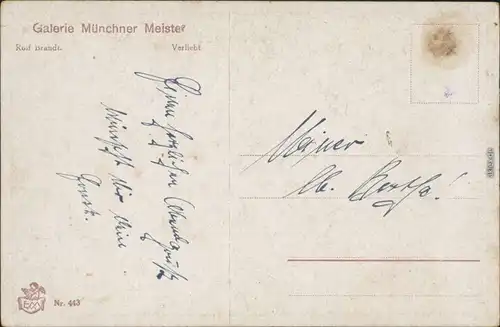 Galerie Münchner Meister
Rud Brandt.
Verliebt.
Einen herzlichen Abendgruß
wünscht Dir Dein
Meiner
lb. Bertha!
Nr. 443